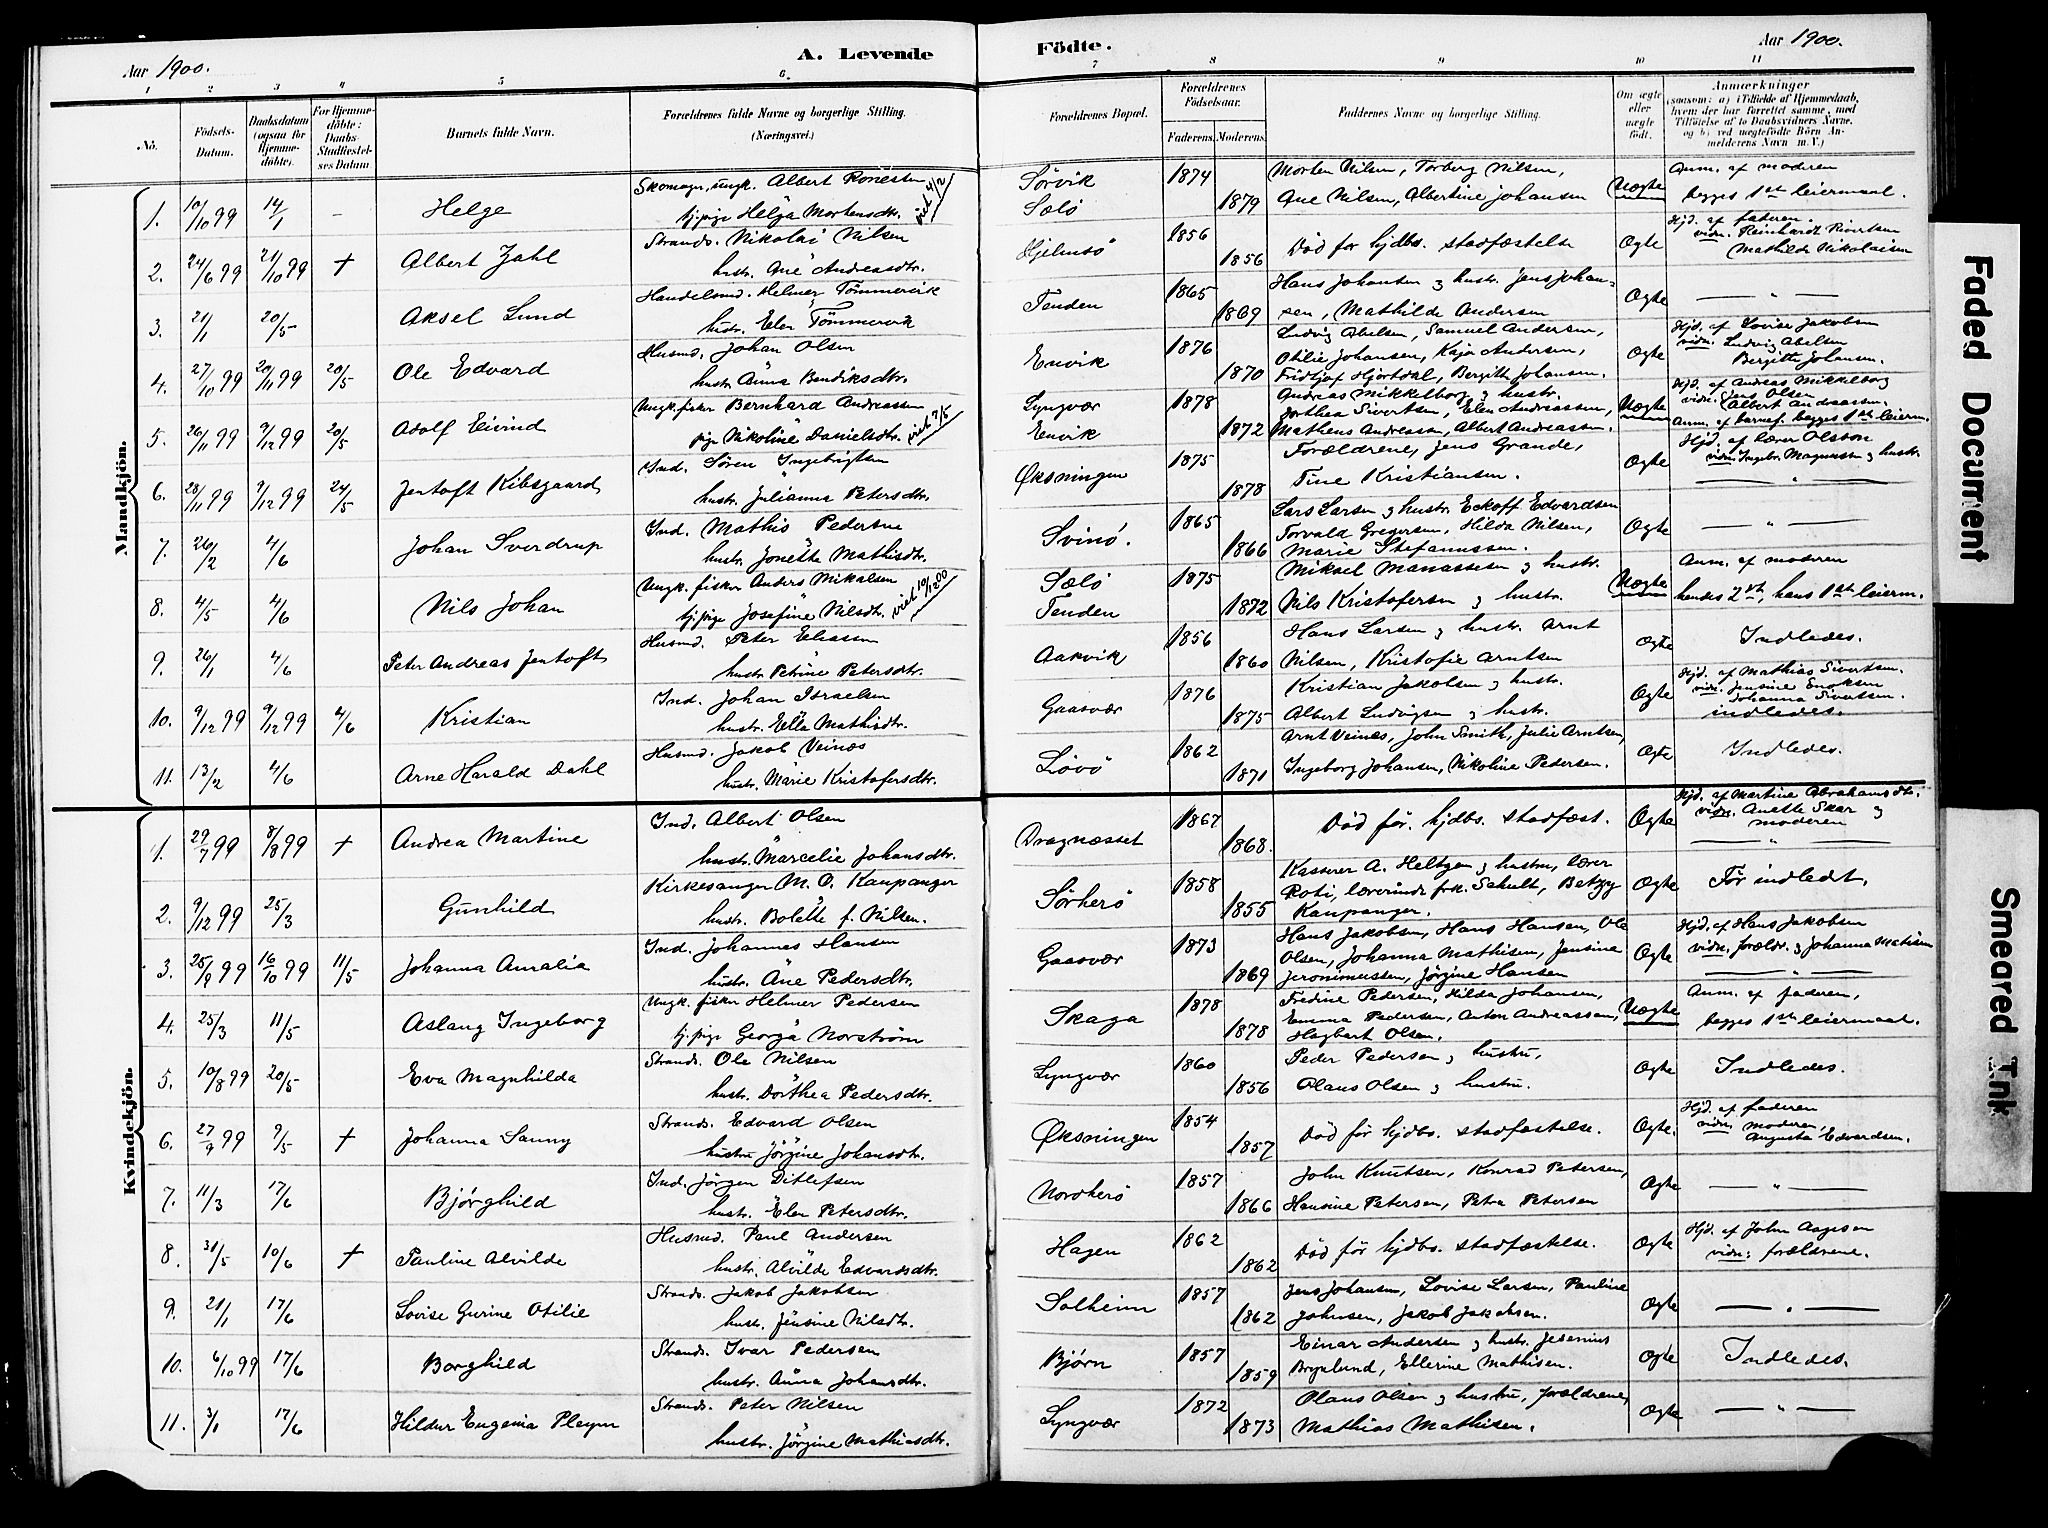 Aar 1900.
A. Levende
Födte.
Aar 1900.
1 2 3 4 5 6. 7 8 9 10 11
No.
Födsels-Datum.
Daabsdatum (ogsaa for Hjemmedöbte).
For Hjemmedöbte: Daabs-Stadfæstelses Datum
Barnets fulde Navn.
Forældrenes fulde Navne og borgerlige Stilling. (Næringsvei.)
Forældrenes Bopæl.
Forældrenes Födselsaar.
Faderens. Moderens.
Faddernes Navne og borgerlige Stilling.
Om ægte eller uægte födt.
Anmærkninger
(saasom: a) i Tilfælde af Hjemmedaab, hvem der har forrettet samme, med Tilföielse af to Daabsvidners Navne, og b) ved uægtefödte Börn Anmelderens Navn m. V.)
Mandkjön.
1. 10/10 99 14/1 – Helge Skomager, ungk. Albert Ronesten Sörvik 1874 Morten Nilsen, Torberg Nilsen, Uægte Anm. af moderen
tj. pige Helga Mortensdtr. viet 4/2 Sælö 1879 Ane Nilsen, Albertine Johansen begges 1st leiermaal.
2. 24/6 99 21/10 99 + Albert Zahl Strands. Nikolai Nilsen Hjelmsö 1856 Död för hjdbs. stadfæstelse Ægte Hjd. af faderen.
hustr. Ane Andreasdtr. 1856 vidn. Reinhardt Sivertsen Mathilde Nikolaisen
3. 21/1 20/5 Aksel Lund Handelsmd. Helmer Tömmervik Tenden 1865 Hans Johansen og hustr. Jens Johan- Ægte — " —
hustr. Elen Tömmervik 1869 sen, Mathilde Andersen
4. 27/10 99 20/11 99 20/5 Ole Edvard Husmd. Johan Olsen Envik 1876 Ludvig Abelsen, Samuel Andersen, Ægte Hjd. af Lovise Jakobsen
hustr. Anna Bendiksdtr. 1870 Otilie Johansen, Kaja Andersen, vidn. Ludvig Abelsen
Fridtjof Hjortdal, Bergitte Johansen. Bergitte Johansen.
5. 26/11 99 9/12 99 20/5 Adolf Eivind Ungk. fisker Bernhard Andreassen Lyngvær 1878 Andreas Mikkelborg og hustr. Uægte Hjd. af Andreas Mikkelborg
pige Nikoline Danielsdtr. viet 7/5 Envik 1872 Jorthea Sivertsen, Elen Andreassen, vidn. Jens Olsen Albert Andreassen.
Matheus Andreassen, Albert Andreassen. Anm. af barnef. begges 1ste leierm.
6. 28/11 99 9/12 99 24/5 Jentoft Kibsgaard Ind. Sören Ingebrigtsen Øksningen 1875 Forældrene, Jens Grande, Ægte Hjd. af lærer Olsson
hustr. Julianna Petersdtr. 1878 Tine Kristiansen. vidn. Ingebr. Magnussen og hustr.
— " —
7. 26/2 4/6 Johan Sverdrup Ind. Mathis Pedersen Svinö. 1865 Lars Larsen og hustr. Eckoff Edvardsen Ægte — " —
hustr. Jonette Mathisdtr. 1866 Torvald Gregersen, Hilda Nilsen,
Marie Stefanussen.
8. 4/5 4/6 Nils Johan Ungk. fisker Anders Mikalsen Sælö 1875 Mikael Manassesen og hustr. Uægte Anm. af moderen
tj. pige Josefine Nilsdtr. viet 10/12 00 Tenden 1872 Nils Kristofersen og hustr. hendes 2det, hans 1ste leierm.
9. 26/1 4/6 Peter Andreas Jentoft Husmd. Peter Eliassen Aakvik 1856 Hans Larsen og hustr. Arnt Ægte Indledes.
hustr. Petrine Petersdtr. 1860 Nilsen, Kristofie Arntsen
10. 9/12 99 9/12 99 4/6 Kristian Ind. Johan Israelsen Gaasvær 1876 Kristian Jakobsen og hustr. Ægte Hjd. af Mathias Sivertsen.
hustr. Ella Mathisdtr. 1875 Albert Ludvigsen og hustr. vidn. Jensine Enoksen Johanna Sivertsen.
indledes.
11. 13/2 4/6 Arne Harald Dahl Husmd. Jakob Veines Lövö 1862 Arnt Veines, John Smith, Julie Arntsen, Ægte Indledes.
hustr. Marie Kristofersdtr. 1871 Ingeborg Johansen, Nikoline Pedersen.
Kvindekjön.
1. 29/7 99 8/8 99 + Andrea Martine Ind. Albert Olsen Dragnæsset 1867 Död för. hjdbs. stadfæst. Ægte Hjd. af Martine Abrahamsdtr.
hustr. Marcelie Johansdtr. 1868. vidn. Anette Skar og moderen
— " —
2. 9/12 99 25/3 Gunhild Kirkesanger M. O. Kaupanger Sörherö 1858 Kasserer A. Heltzen og hustru, lærer Ægte Før indledt.
hustr. Bolette f. Nilsen. 1855 Roti, lærerinde frk. Schult, Betzy
Kaupanger.
3. 25/9 99 16/10 99 11/5 Johanna Amalia Ind. Johannes Hansen Gaasvær 1873 Hans Jakobsen, Hans Hansen, Ole Ægte Hjd. af Hans Jakobsen
hustr. Ane Pedersdtr. 1869 Olsen, Johanna Mathisen, Jensine vidn. foreldr. og Johanna Matisen
Jeronimussen, Jörgine Hansen — " —
4. 25/3 11/5 Aslaug Ingeborg Ungk. fisker Helmer Pedersen Skaga 1878 Fredine Pedersen, Hilda Johansen, Uægte Anm. af faderen,
tj. pige Georga Norström 1878 Emma Pedersen, Anton Andreassen, begges 1ste leiermaal.
Hagbart Olsen.
5. 10/8 99 20/5 Eva Magnhilda Strands. Ole Nilsen Lyngvær 1860 Peder Pedersen og hustru, Ægte Indledes.
hustr. Dorthea Pedersdtr. 1856 Olaus Olsen og hustru.
6. 27/9 99 9/5 + Johanna Sanny Strands. Edvard Olsen Øksningen 1854 Död för hjdbs. stadfæstelse. Ægte. Hjd. af faderen
hustru Jörgine Johansdtr. 1857 vidn. moderen Augusta Edvardsen.
7. 11/3 17/6 Bjørghild Ind. Jörgen Ditlefsen Nordherö 1857 John Knutsen, Konrad Petersen, Ægte — " —
hustr. Elen Petersdtr. 1866 Hansine Petersen, Petra Petersen
8. 31/5 10/6 + Pauline Alvilde Husmd. Paul Andersen Hagen 1862 Död för hjdbs. stadfæstelse. Ægte Hjd. af John Aagesen
hustr. Alvilde Edvardsdtr. 1862 vidn: forældrene.
9. 21/1 17/6 Lovise Gurine Otilie Strands. Jakob Jakobsen Solheim 1857 Jens Johansen, Lovise Larsen, Pauline Ægte — " —
hustr. Jensine Nilsdtr. 1862 Johnsen, Jakob Jakobsen.
10. 6/10 99 17/6 Borghild Strands. Ivar Pedersen Bjørn 1857 Einar Andersen og hustr. Jesenius Ægte Indledes.
hustr. Anna Johansdtr. 1859 Brynlund, Ellerine Mathisen.
11. 3/1 17/6 Hildur Eugenia Pleym Strands. Peter Nilsen Lyngvær 1872 Olaus Olsen og hustru, forældrene, Ægte — " —
hustr. Jörgine Mathiasdtr. 1873 Mathias Mathisen.
Faded Document
Smeared Ink